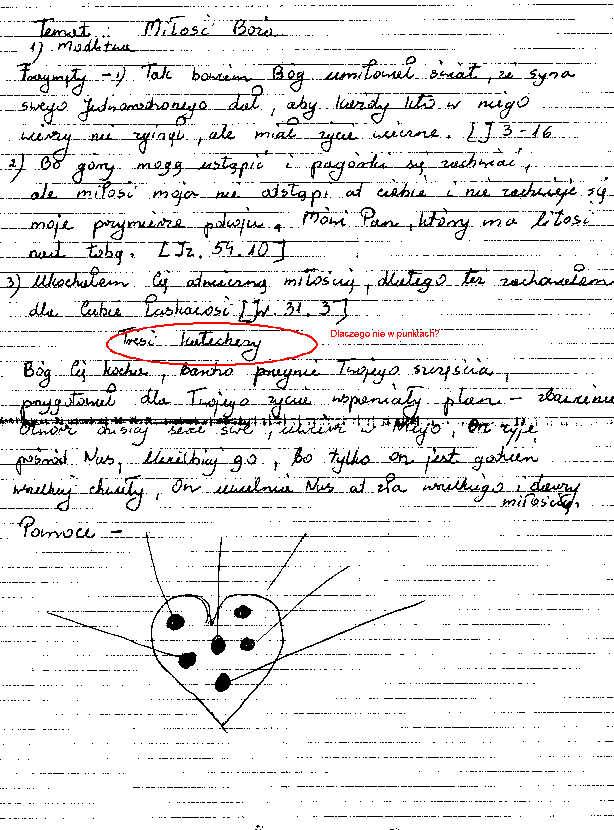 Temat: Miłość Boża
1) Modlitwa
Fragmęty - 1) Tak bowiem Bóg umiłował świat, że syna
swego Jednorodzonego dał, aby każdy kto w niego
wierzy nie zginął, ale miał życie wieczne. [J 3-16
2) Bo góry mogą ustąpić i pagórki się zachwiać,
ale miłość moja nie odstąpi od ciebie i nie zachwieje się
moje przymierze pokoju. Mówi Pan, który ma litość
nad tobą. [Iz. 54.10]
3) Ukochałem Cię odwieczną miłością, dlatego też zachowałem
dla Ciebie łaskawość [Jr. 31. 3]
Treść katechezy
Dlaczego nie w punktach?
Bóg Cię kocha, bardzo pragnie Twojego szczęścia,
przygotował dla Twojego życia wspaniały plan - zbawienie
Otwórz dzisiaj serce swe, uwierz w Niego, On żyje
pośród Nas, Uwielbiaj go, bo tylko On jest godzien
wielkiej chwały, On uwalnia Nas od zła wielkiego i darzy
miłością.
Pomoce -